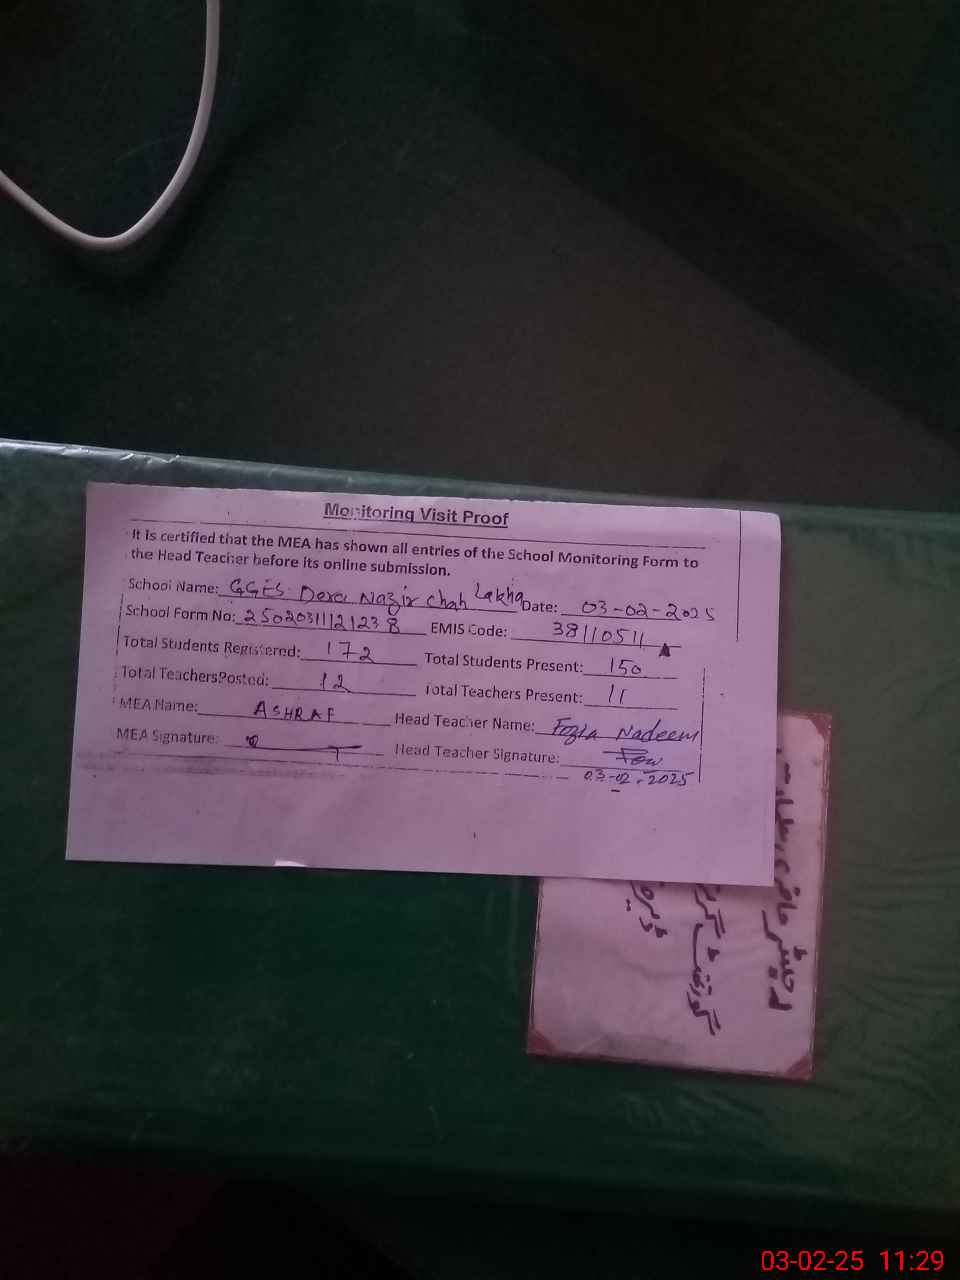 Monitoring Visit Proof
It is certified that the MEA has shown all entries of the School Monitoring Form to
the Head Teacher before its online submission.
School Name: GGES Dera Nazir Chah Lakha Date: 03-02-2025
School Form No: 25020311121238 EMIS Code: 38110511
Total Students Registered: 172 Total Students Present: 150
Total TeachersPosted: 12 Total Teachers Present: 11
MEA Name: ASHRAF Head Teacher Name: Fozia Nadeem
MEA Signature: Head Teacher Signature:
03-02-2025
رجسٹر حاضری
گورنمنٹ
03-02-25 11:29